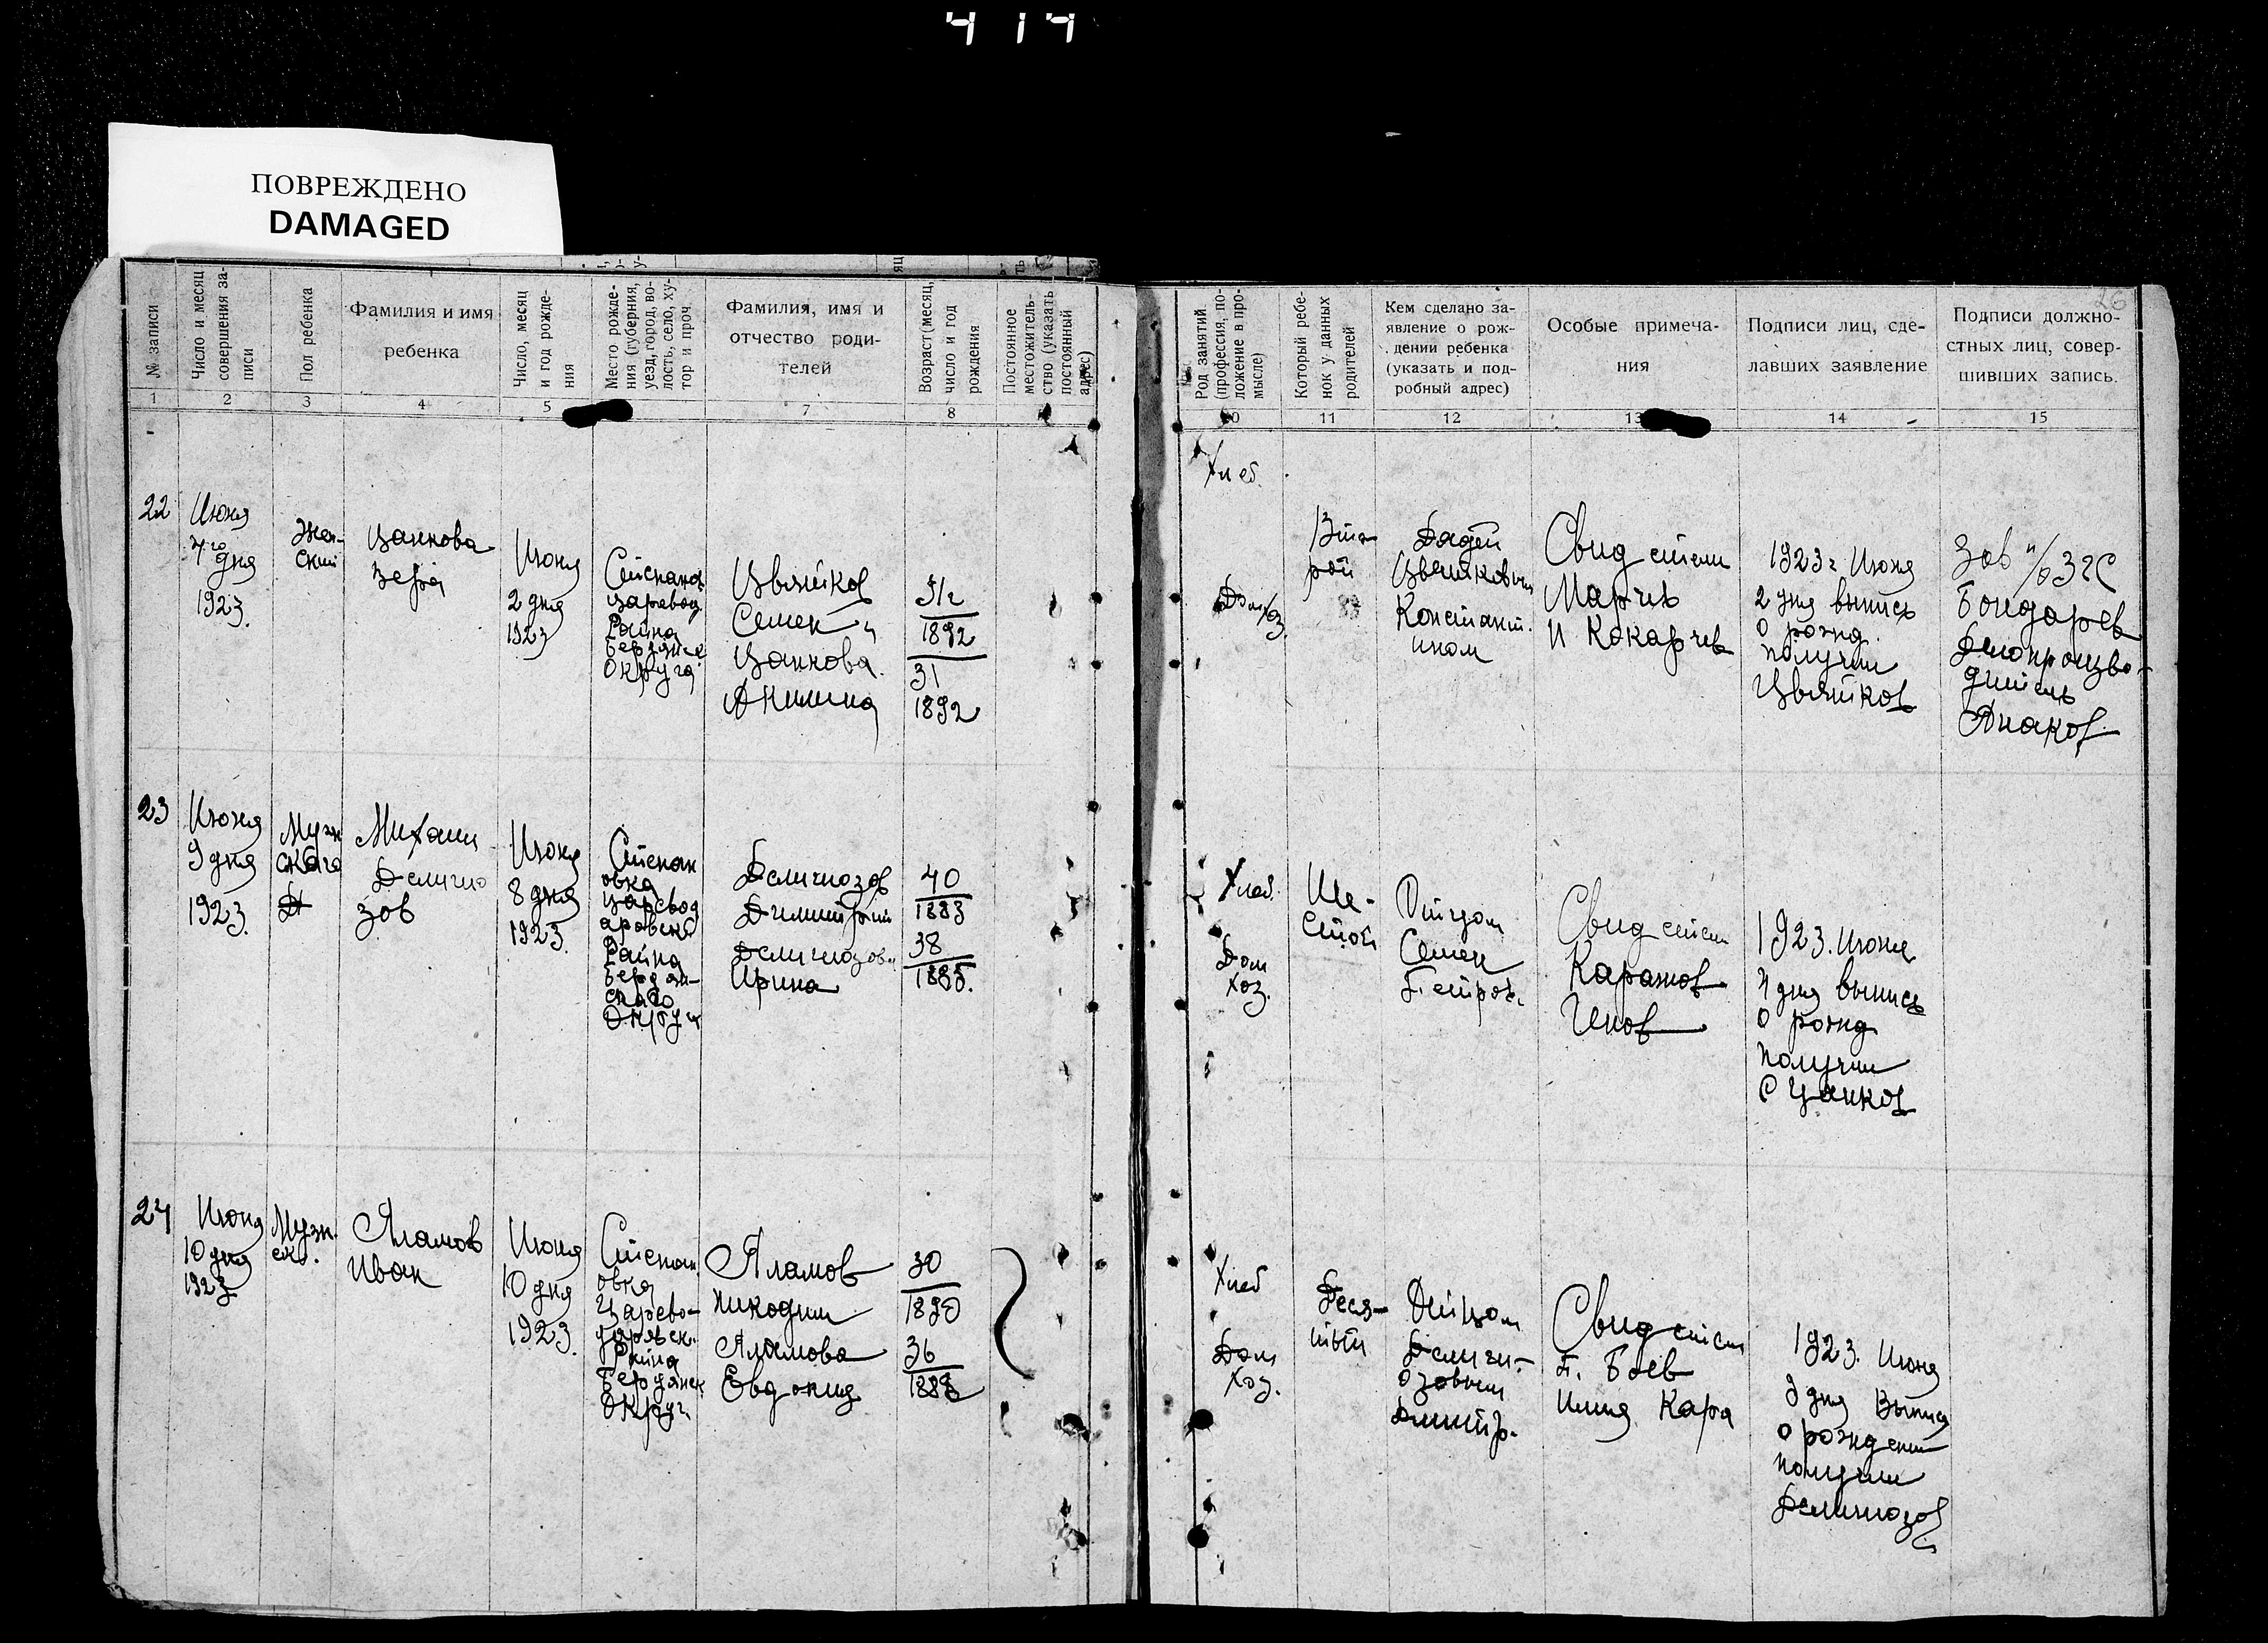 414
ПОВРЕЖДЕНО
DAMAGED
26
№ записи
Число и месяц
совершения за-
писи
Пол ребенка
Фамилия и имя
ребенка
Число, месяц
и год рожде-
ния
Место рожде-
ния (губерния,
уезд, город, во-
лость, село, ху-
тор и проч.
Фамилия, имя и
отчество роди-
телей
Возраст (месяц,
число и год
рождения
Постоянное
местожитель-
ство (указать
постоянный
адрес)
Род занятий
(профессия, по-
ложение в про-
мысле)
Который ребе-
нок у данных
родителей
Кем сделано за-
явление о рож-
дении ребенка
(указать и под-
робный адрес)
Особые примеча-
ния
Подписи лиц, сде-
лавших заявление
Подписи должно-
стных лиц, совер-
шивших запись.
1 2 3 4 5 7 8 10 11 12 13 14 15
22
Июня
7го дня
1923
Жен-
ский
Цанкова
Июня
2 дня
1923
Царевод
Района
Бердянск
Округа
Цвятков
Семен
Цанкова
31
1892
31
1892
Хлеб.
Дом хоз.
Вто-
рой
Дядей
Цвятковым
Констант.
ином
Свид
и Кокарчев
1923 г Июня
2 дня выпись
о рожд.
получил
Цвятков
Зав
Бондарев
Делопроизво-
дитель
23
Июня
9 дня
1923
Муж
скаго
Михаил
Делигио
зов
Июня
8 дня
1923.
Степан
овка
Царевод
аровск
Района
Бердян-
скаго
Округа
Делигиозов
Димитрий
Делигиозова
Ирина
40
1883
38
1885.
Хлеб.
Дом
хоз.
Ше-
стой
Отцом
Семен
Петров.
Свид
1923. Июня
4 дня выпись
о рожд
получил
С Цанков
24
Июня
10 дня
1923
Муж.
ск.
Аламов
Иван
Июня
10 дня
1923.
Степан
овка
Царево-
даровск.
Района
Бердянск
Округ.
Аламов
Никодим
Аламова
Евдокия
30
1890
36
Хлеб
Дом
Хоз.
Деся-
тый
Отцом
Делиги-
озовым
Димитр.
Свид
П. Боев
Илия Кара
1923. Июня
9 дня Выпись
о рождении
получил
Делигиозов